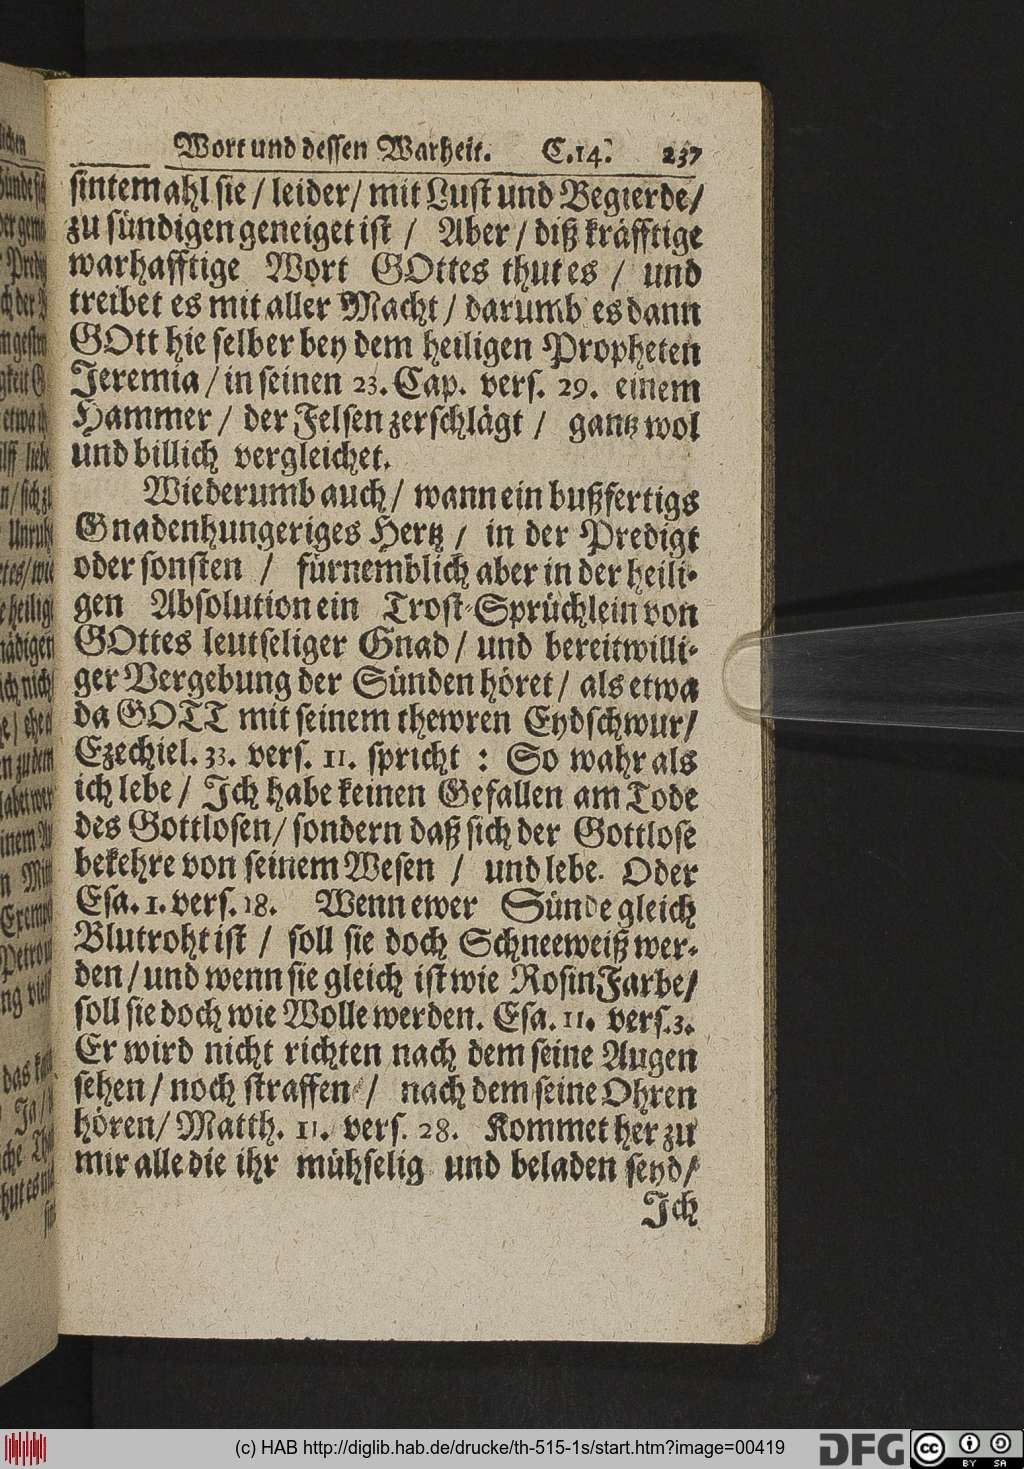 Wort und dessen Warheit. C.14. 237
sintemahl sie / leider / mit Lust und Begierde /
zu sündigen geneiget ist / Aber / diß kräfftige
warhafftige Wort GOttes thut es / und
treibet es mit aller Macht / darumb es dann
GOtt hie selber bey dem heiligen Propheten
Jeremia / in seinen 23. Cap. vers. 29. einem
Hammer / der Felsen zerschlägt / gantz wol
und billich vergleichet.
Wiederumb auch / wann ein bußfertigs
Gnadenhungeriges Hertz / in der Predigt
oder sonsten / fürnemblich aber in der heili-
gen Absolution ein Trost-Sprüchlein von
GOttes leutseliger Gnad / und bereitwilli-
ger Vergebung der Sünden höret / als etwa
da GOTT mit seinem thewren Eydschwur /
Ezechiel. 33. vers. 11. spricht : So wahr als
ich lebe / Ich habe keinen Gefallen am Tode
des Gottlosen / sondern daß sich der Gottlose
bekehre von seinem Wesen / und lebe. Oder
Esa. 1. vers. 18. Wenn ewer Sünde gleich
Blutroht ist / soll sie doch Schneeweiß wer-
den / und wenn sie gleich ist wie RosinFarbe /
soll sie doch wie Wolle werden. Esa. 11. vers. 3.
Er wird nicht richten nach dem seine Augen
sehen / noch straffen / nach dem seine Ohren
hören / Matth. 11. vers. 28. Kommet her zu
mir alle die ihr mühselig und beladen seyd /
Ich
(c) HAB http://diglib.hab.de/drucke/th-515-1s/start.htm?image=00419
DFG
cc BY SA